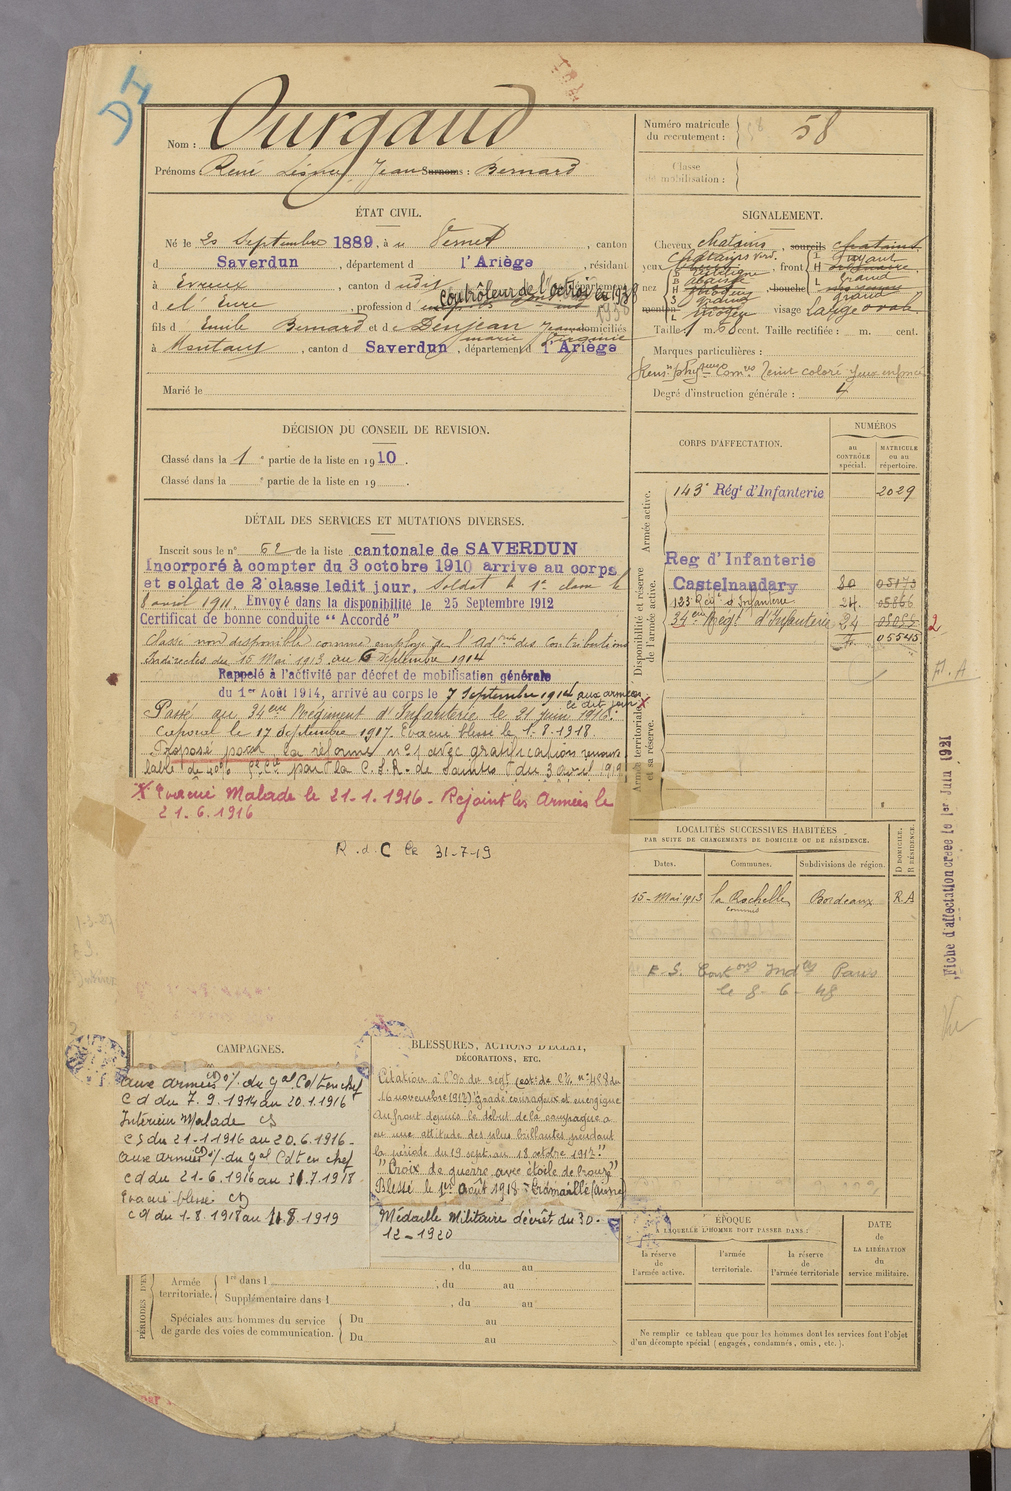 DI
Nom : Ourgaud
Prénoms : René Jean Surnoms : Bernard
Numéro matricule du recrutement : 58
Classe de mobilisation :
ÉTAT CIVIL.
Né le 20 Septembre 1889, à u Vernet, canton
d Saverdun, département d l'Ariège, résidant
à Evreux, canton d udit, département
d el' Eure, profession d Contrôleur de l'octroi en 1938
1938
fils d Emile Bernard et d e Denjean Jeanne domiciliés
marie Virginie
à Montaut, canton d Saverdun, département d l'Ariège
Marié le
SIGNALEMENT.
Cheveux chatains, sourcils chatains
yeux chatains verd., front
I fuyant
H ordinaire
L Grand
nez rectiligne, bouche
grand
menton moyen visage Large ovale
Taille 1 m. 60 cent. Taille rectifiée : m. cent.
Marques particulières :
Rens. phys. com. Teint coloré yeux enfoncés
Degré d'instruction générale : 4
DÉCISION DU CONSEIL DE REVISION.
Classé dans la 1e partie de la liste en 1910.
Classé dans la e partie de la liste en 19 .
DÉTAIL DES SERVICES ET MUTATIONS DIVERSES.
Inscrit sous le n° 62 de la liste cantonale de SAVERDUN
Incorporé à compter du 3 octobre 1910 arrive au corps
et soldat de 2e classe ledit jour, Soldat de 1e classe le
8 avril 1911. Envoyé dans la disponibilité le 25 Septembre 1912
Certificat de bonne conduite "Accordé"
Classé non disponible comme employé de l'Adon des Contributions
Indirectes du 15 Mai 1913 au 6 septembre 1914
Rappelé à l'activité par décret de mobilisation générale
du 1er Août 1914, arrivé au corps le 7 Septembre 1914 aux armées
le dit jour X
Passé au 34ème Régiment d'Infanterie le 21 juin 1916.
Caporal le 17 Septembre 1917. Evacué blessé le 1-8-1918
Proposé pour la réforme n° 1 avec gratification renouve
lable de 40% par la C.S.R. de Saintes du 3 avril 1919
X Evacué Malade le 21-1-1916 - Rejoint les Armées le
21.6.1916
R.d.C le 31-7-19
CORPS D'AFFECTATION.
NUMÉROS
au CONTRÔLE spécial.
MATRICULE ou au répertoire.
Armée active.
143e Régt d'Infanterie 2029
Disponibilité et réserve de l'armée active.
Reg d'Infanterie
Castelnaudary 20 05173
123 Régt d'Infanterie 24. 05866
34ème Regt d'Infanterie 24 05055 2
05545
Armée territoriale et sa réserve.
LOCALITÉS SUCCESSIVES HABITÉES
PAR SUITE DE CHANGEMENTS DE DOMICILE OU DE RÉSIDENCE.
D DOMICILE. R RÉSIDENCE.
Dates. Communes. Subdivisions de région.
15-Mai 1913 La Rochelle Bordeaux R.A
F.S. Conton Indes Paris
le 8-6-48
Fiche d'affectation créée le 1er Juin 1921
CAMPAGNES.
aux armées CD % du gal Cdt en chef
C d du 7.9.1914 au 20.1.1916
Intérieur Malade CS
CS du 21-1-1916 au 20.6.1916-
aux armées CD % du gal Cdt en chef
C d du 21-6-1916 au 31.7.1918
Evacué blessé CD
C d du 1.8.1918 au 11.8.1919
BLESSURES, ACTIONS D'ÉCLAT,
DÉCORATIONS, ETC.
Citation à l'O. du régt n° 458 du
16 novembre 1917 "Gradé courageux et énergique
Au front depuis le début de la campagne a
eu une attitude des plus brillantes pendant
la période du 19 sept. au 18 octobre 1917."
"Croix de guerre avec étoile de bronze"
Blessé le 1er août 1918 - Cramaille (Aisne)
Médaille Militaire décrêt du 30-
12-1920
PÉRIODES D'EX
, du au
Armée territoriale. 1re dans l , du au
Supplémentaire dans l , du au
Spéciales aux hommes du service de garde des voies de communication.
Du au
Du au
ÉPOQUE
À LAQUELLE L'HOMME DOIT PASSER DANS :
la réserve de l'armée active.
l'armée territoriale.
la réserve de l'armée territoriale
DATE de LA LIBÉRATION du service militaire.
Ne remplir ce tableau que pour les hommes dont les services font l'objet
d'un décompte spécial (engagés, condamnés, omis, etc.).